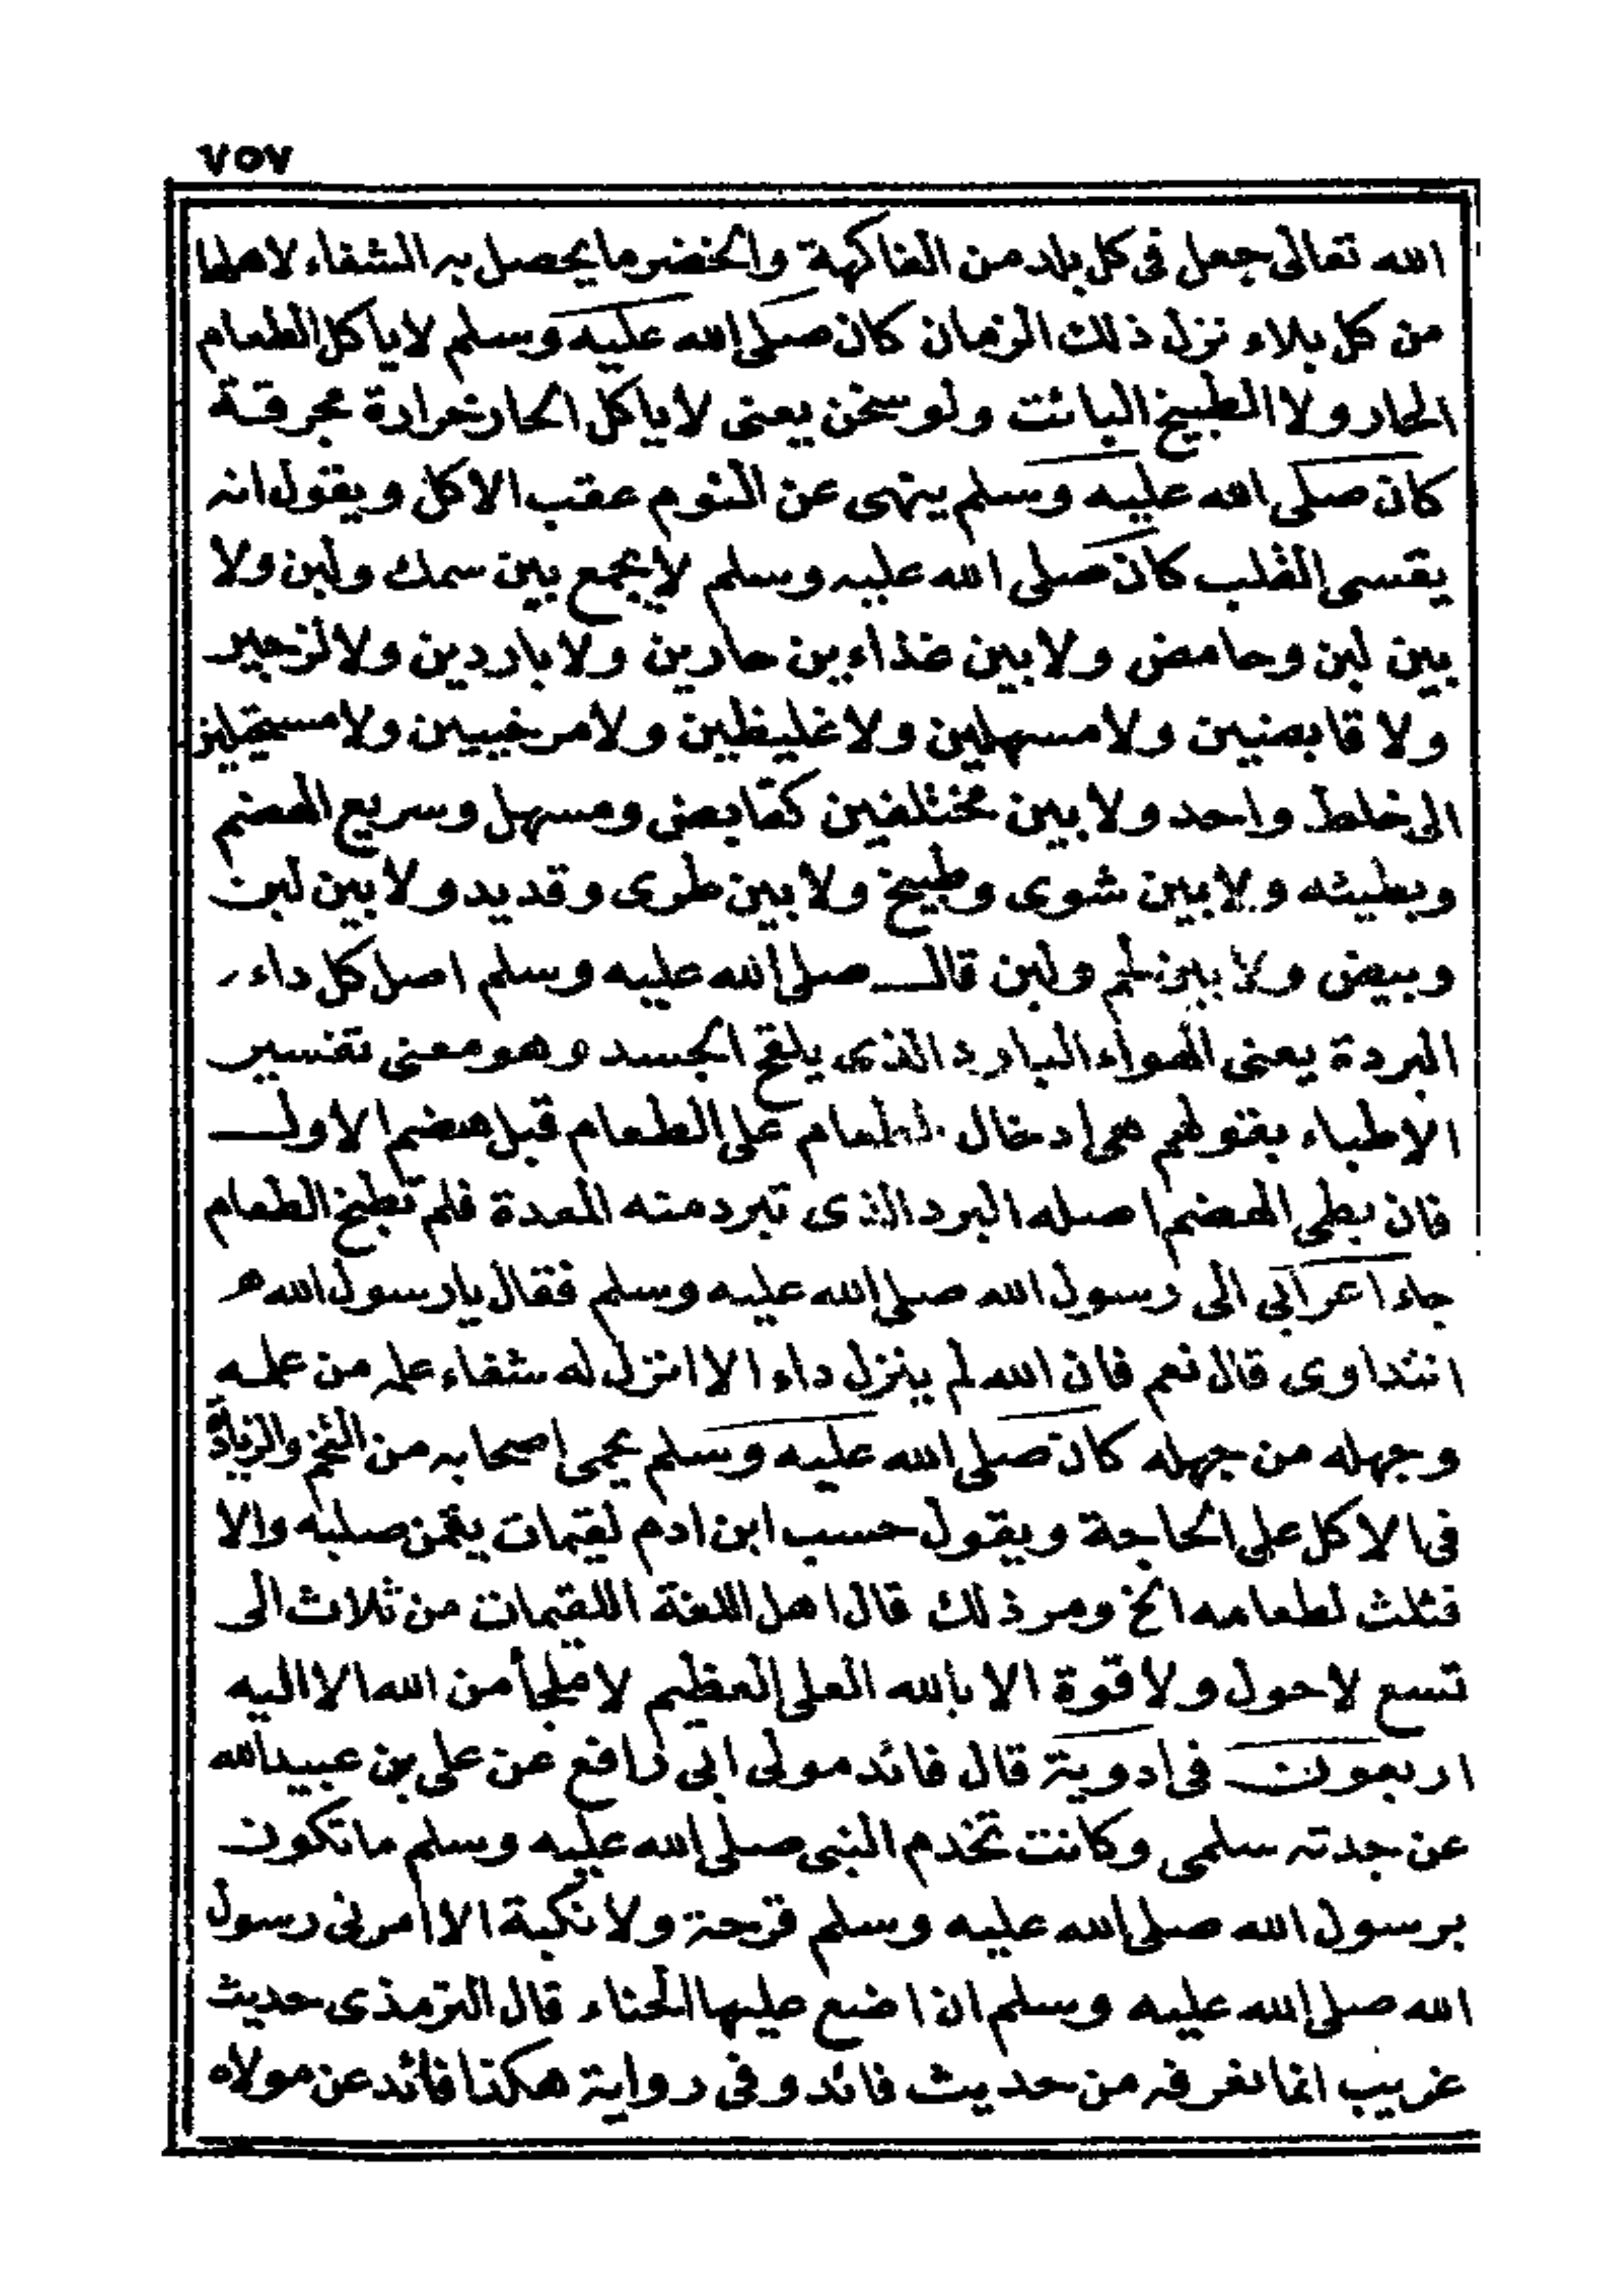 ٧٥٧
الله تعالى جعل فى كل بلد من الفاكهة والخضر ما يحصل به الشفاء لاهلها
من كل بلاء نزل ذلك الزمان كان صلى الله عليه وسلم لا ياكل الطعام
الحار ولا الطبيخ البائت ولو سخن يعنى لا ياكل الحار حرارة محرقة
كان صلى الله عليه وسلم ينهى عن النوم عقب الاكل ويقول انه
يقسى القلب كان صلى الله عليه وسلم لا يجمع بين سمك ولبن ولا
بين لبن وحامض ولا بين غذاءين حارين ولا باردين ولا لزجين
ولا قابضين ولا مسهلين ولا غليظين ولا مرخيين ولا مستحيلين
الى خلط واحد ولا بين مختلفين كقابض ومسهل وسريع الهضم
وبطيئه ولا بين شوى وطبيخ ولا بين طرى وقديد ولا بين لبن
وبيض ولا بين لحم ولبن قال صلى الله عليه وسلم اصل كل داء
البردة يعنى الهواء البارد الذى يلفح الجسد وهو معنى تفسير
الاطباء بقولهم هى ادخال الطعام على الطعام قبل هضم الاول
فان بطى الهضم اصله البرد الذى تبرد منه المعدة فلم تطبخ الطعام
جاء اعرابى الى رسول الله صلى الله عليه وسلم فقال يا رسول الله
انتداوى قال نعم فان الله لم ينزل داء الا انزل له شفاء علمه من علمه
وجهله من جهله كان صلى الله عليه وسلم يحمى اصحابه من التخم والزيادة
فى الاكل على الحاجة ويقول حسب ابن ادم لقيمات يقمن صلبه والا
فثلث لطعامه الخ ومر ذلك قال اهل اللغة اللقيمات من ثلاث الى
تسع لا حول ولا قوة الا بالله العلى العظيم لا ملجأ من الله الا اليه
اربعون فى ادوية قال فائد مولى ابى رافع عن على بن عبيد الله
عن جدته سلمى وكانت تخدم النبى صلى الله عليه وسلم ما تكون
برسول الله صلى الله عليه وسلم قرحة ولا نكبة الا امرنى رسول
الله صلى الله عليه وسلم ان اضع عليها الحناء قال الترمذى حديث
غريب انما نعرفه من حديث فائد وفى رواية هكذا فائد عن مولاه